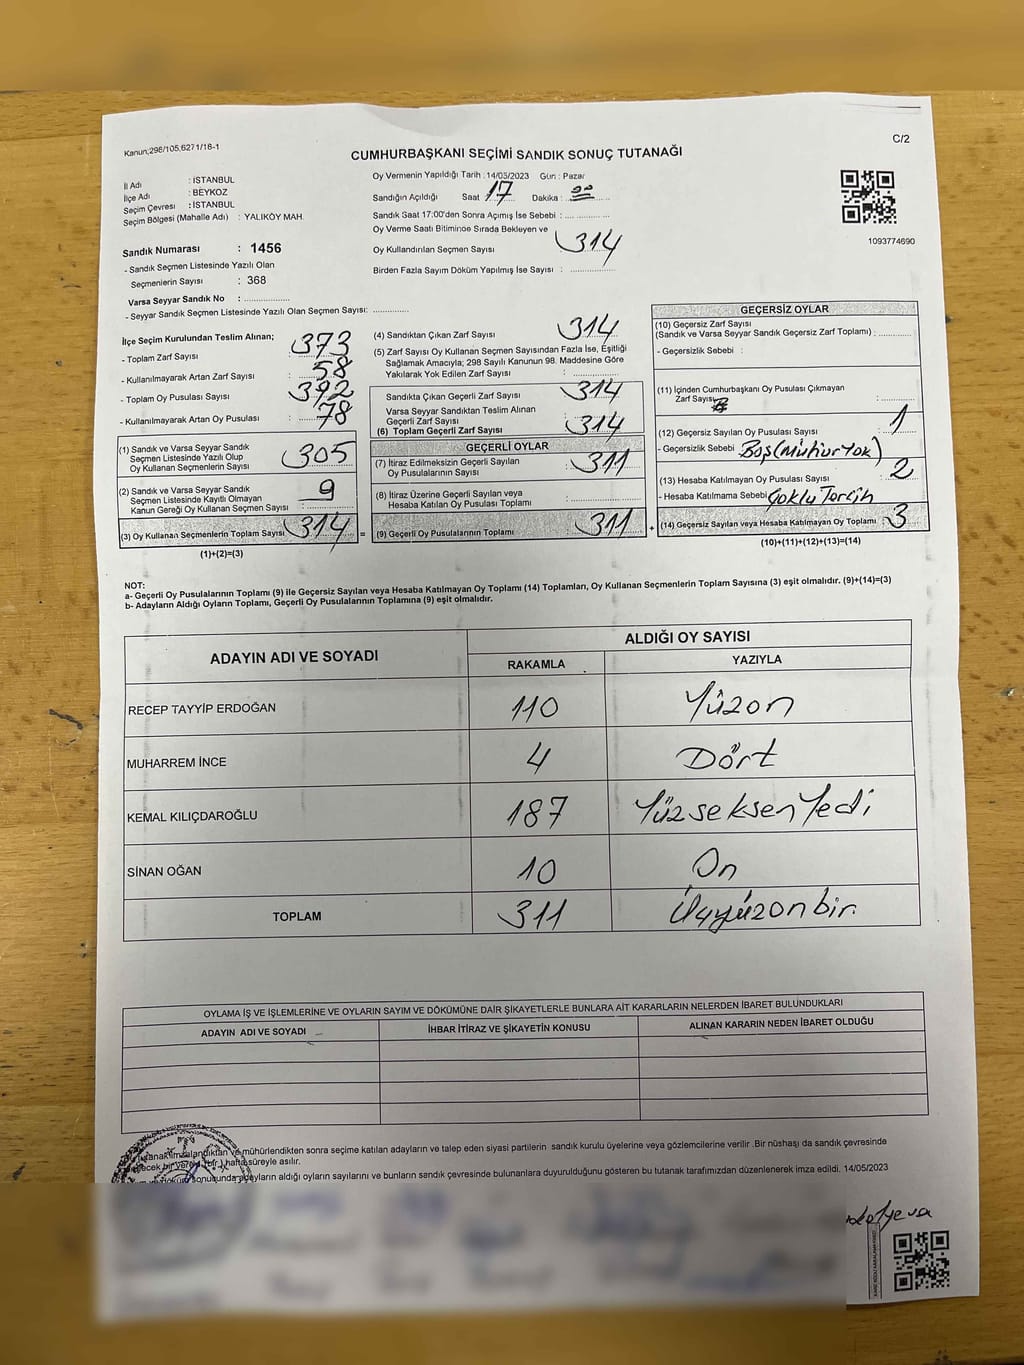 Kanun;298/105,6271/18-1
C/2
CUMHURBAŞKANI SEÇİMİ SANDIK SONUÇ TUTANAĞI
İl Adı : İSTANBUL
İlçe Adı : BEYKOZ
Seçim Çevresi : İSTANBUL
Seçim Bölgesi (Mahalle Adı) : YALIKÖY MAH.
Sandık Numarası : 1456
- Sandık Seçmen Listesinde Yazılı Olan
Seçmenlerin Sayısı : 368
Varsa Seyyar Sandık No :
- Seyyar Sandık Seçmen Listesinde Yazılı Olan Seçmen Sayısı:
Oy Vermenin Yapıldığı Tarih : 14/05/2023 Gün : Pazar
Sandığın Açıldığı Saat 17 Dakika : 00
Sandık Saat 17:00'den Sonra Açımış İse Sebebi :
Oy Verme Saati Bitiminde Sırada Bekleyen ve
Oy Kullandırılan Seçmen Sayısı 314
Birden Fazla Sayım Döküm Yapılmış İse Sayısı :
1093774690
İlçe Seçim Kurulundan Teslim Alınan;
- Toplam Zarf Sayısı : 373
- Kullanılmayarak Artan Zarf Sayısı : 58
- Toplam Oy Pusulası Sayısı : 392
- Kullanılmayarak Artan Oy Pusulası : 78
(1) Sandık ve Varsa Seyyar Sandık
Seçmen Listesinde Yazılı Olup
Oy Kullanan Seçmenlerin Sayısı : 305
(2) Sandık ve Varsa Seyyar Sandık
Seçmen Listesinde Kayıtlı Olmayan
Kanun Gereği Oy Kullanan Seçmen Sayısı : 9
(3) Oy Kullanan Seçmenlerin Toplam Sayısı : 314 =
(1)+(2)=(3)
(4) Sandıktan Çıkan Zarf Sayısı : 314
(5) Zarf Sayısı Oy Kullanan Seçmen Sayısından Fazla İse, Eşitliği
Sağlamak Amacıyla; 298 Sayılı Kanunun 98. Maddesine Göre
Yakılarak Yok Edilen Zarf Sayısı :
Sandıkta Çıkan Geçerli Zarf Sayısı : 314
Varsa Seyyar Sandıktan Teslim Alınan
Geçerli Zarf Sayısı
(6) Toplam Geçerli Zarf Sayısı : 314
GEÇERLİ OYLAR
(7) İtiraz Edilmeksizin Geçerli Sayılan
Oy Pusulalarının Sayısı : 311
(8) İtiraz Üzerine Geçerli Sayılan veya
Hesaba Katılan Oy Pusulası Toplamı :
(9) Geçerli Oy Pusulalarının Toplamı : 311 +
GEÇERSİZ OYLAR
(10) Geçersiz Zarf Sayısı
(Sandık ve Varsa Seyyar Sandık Geçersiz Zarf Toplamı) :
- Geçersizlik Sebebi :
(11) İçinden Cumhurbaşkanı Oy Pusulası Çıkmayan
Zarf Sayısı :
(12) Geçersiz Sayılan Oy Pusulası Sayısı : 1
- Geçersizlik Sebebi : Boş (Mühür Yok)
(13) Hesaba Katılmayan Oy Pusulası Sayısı : 2
- Hesaba Katılmama Sebebi : Çoklu Tercih
(14) Geçersiz Sayılan veya Hesaba Katılmayan Oy Toplamı : 3
(10)+(11)+(12)+(13)=(14)
NOT:
a- Geçerli Oy Pusulalarının Toplamı (9) ile Geçersiz Sayılan veya Hesaba Katılmayan Oy Toplamı (14) Toplamları, Oy Kullanan Seçmenlerin Toplam Sayısına (3) eşit olmalıdır. (9)+(14)=(3)
b- Adayların Aldığı Oyların Toplamı, Geçerli Oy Pusulalarının Toplamına (9) eşit olmalıdır.
ADAYIN ADI VE SOYADI
ALDIĞI OY SAYISI
RAKAMLA YAZIYLA
RECEP TAYYİP ERDOĞAN 110 Yüzon
MUHARREM İNCE 4 Dört
KEMAL KILIÇDAROĞLU 187 YüzseksenYedi
SİNAN OĞAN 10 On
TOPLAM 311 Üçyüzonbir
OYLAMA İŞ VE İŞLEMLERİNE VE OYLARIN SAYIM VE DÖKÜMÜNE DAİR ŞİKAYETLERLE BUNLARA AİT KARARLARIN NELERDEN İBARET BULUNDUKLARI
ADAYIN ADI VE SOYADI İHBAR İTİRAZ VE ŞİKAYETİN KONUSU ALINAN KARARIN NEDEN İBARET OLDUĞU
mühürlendikten sonra seçime katılan adayların ve talep eden siyasi partilerin sandık kurulu üyelerine veya gözlemcilerine verilir .Bir nüshası da sandık çevresinde
(bir) hafta süreyle asılır.
sonucunda adayların aldığı oyların sayılarını ve bunların sandık çevresinde bulunanlara duyurulduğunu gösteren bu tutanak tarafımızdan düzenlenerek imza edildi. 14/05/2023